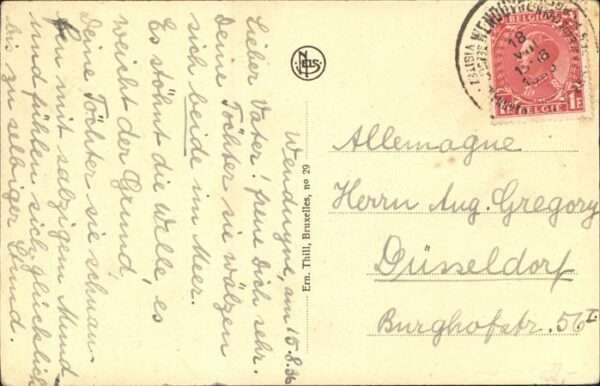 Wenduyne, am 15.8.36
Lieber Vater! freue Dich sehr.
Deine Töchter sie wälzen
sich beide im Meer.
Es stöhnt die Welle, es
weicht der Grund,
Deine Töchter sie schnau-
fen mit salzigem Mund
und fühlen sich glücklich
bis zu selbiger Stund.
Ern. Thill, Bruxelles, no 29
NELS
WENDUYNE
18
VIII
15-16
BELGIE
1F
BELGIE
Allemagne
Herrn Aug. Gregory
Düsseldorf
Burghofstr. 56 I.